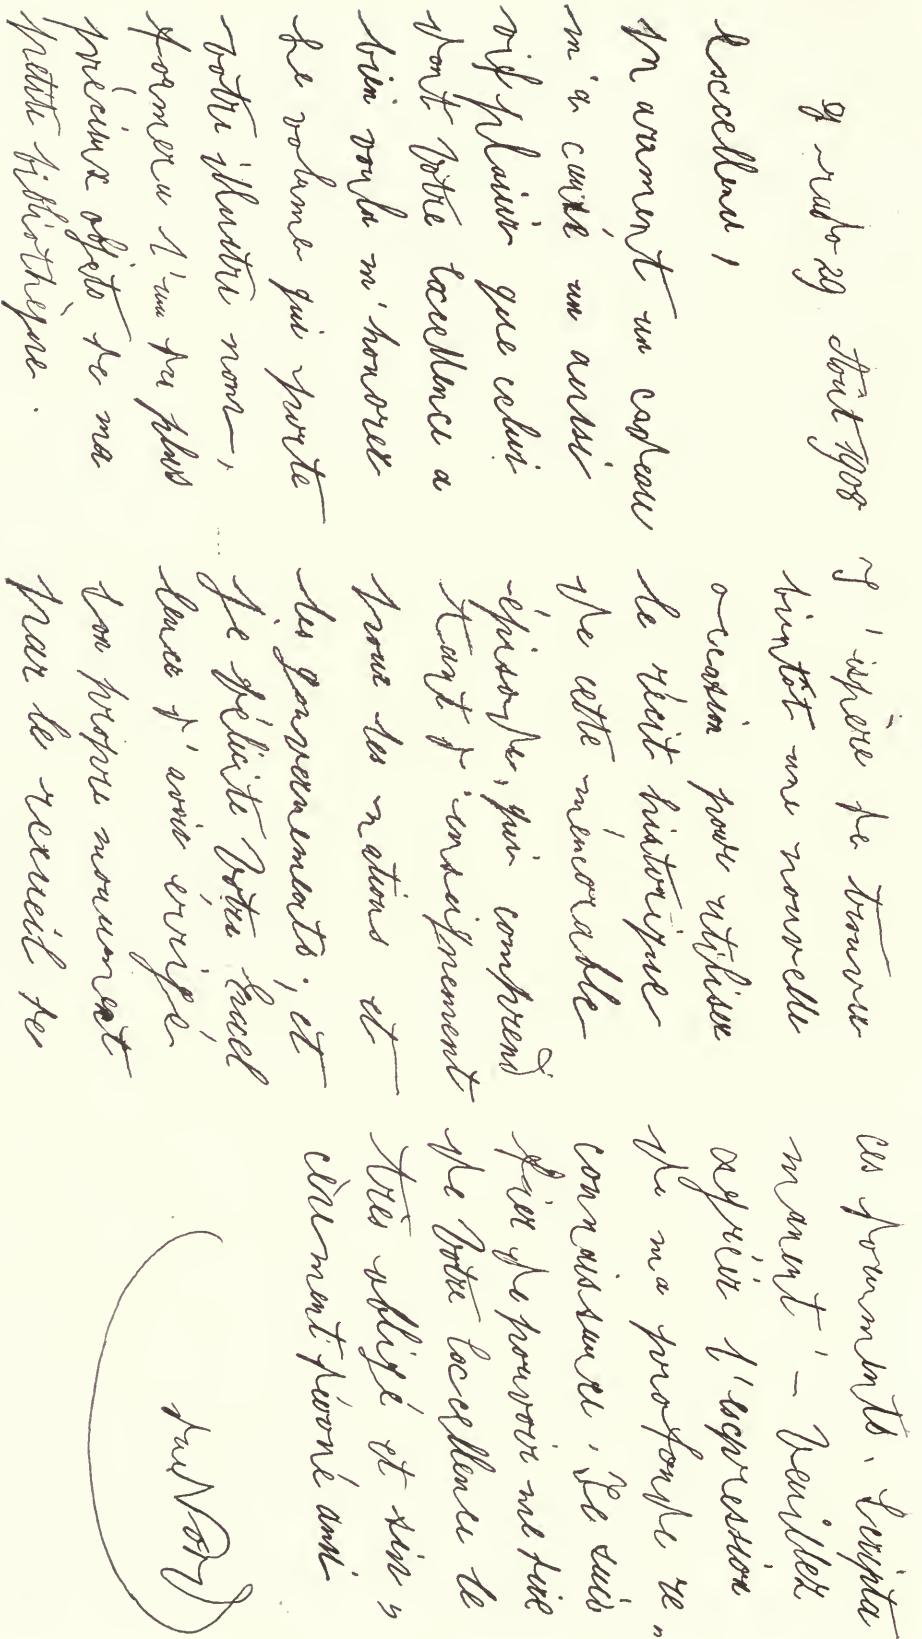 29 Août 1908
Excellence,
Rarement un cadeau
m'a causé un aussi
vif plaisir que celui
dont Votre Excellence a
bien voulu m'honorer
Le volume qui porte
votre illustre nom,
formera l'un des plus
précieux objets de ma
petite bibliothèque.
J'espère de trouver
bientôt une nouvelle
occasion pour utiliser
le récit historique
de cette mémorable
épisode, qui comprend
tant d'enseignement
pour les nations et
les gouvernements; et
je félicite Votre Excel
lence d'avoir érrigé
son propre monument
par le recueil de
ces documents. Scripta
manent! - Veuillez
agréer l'expression
de ma profonde re"
connaissance. Je suis
fier de pouvoir me dire
de Votre Excellence le
très obligé et sin"
cèrement dévoué ami